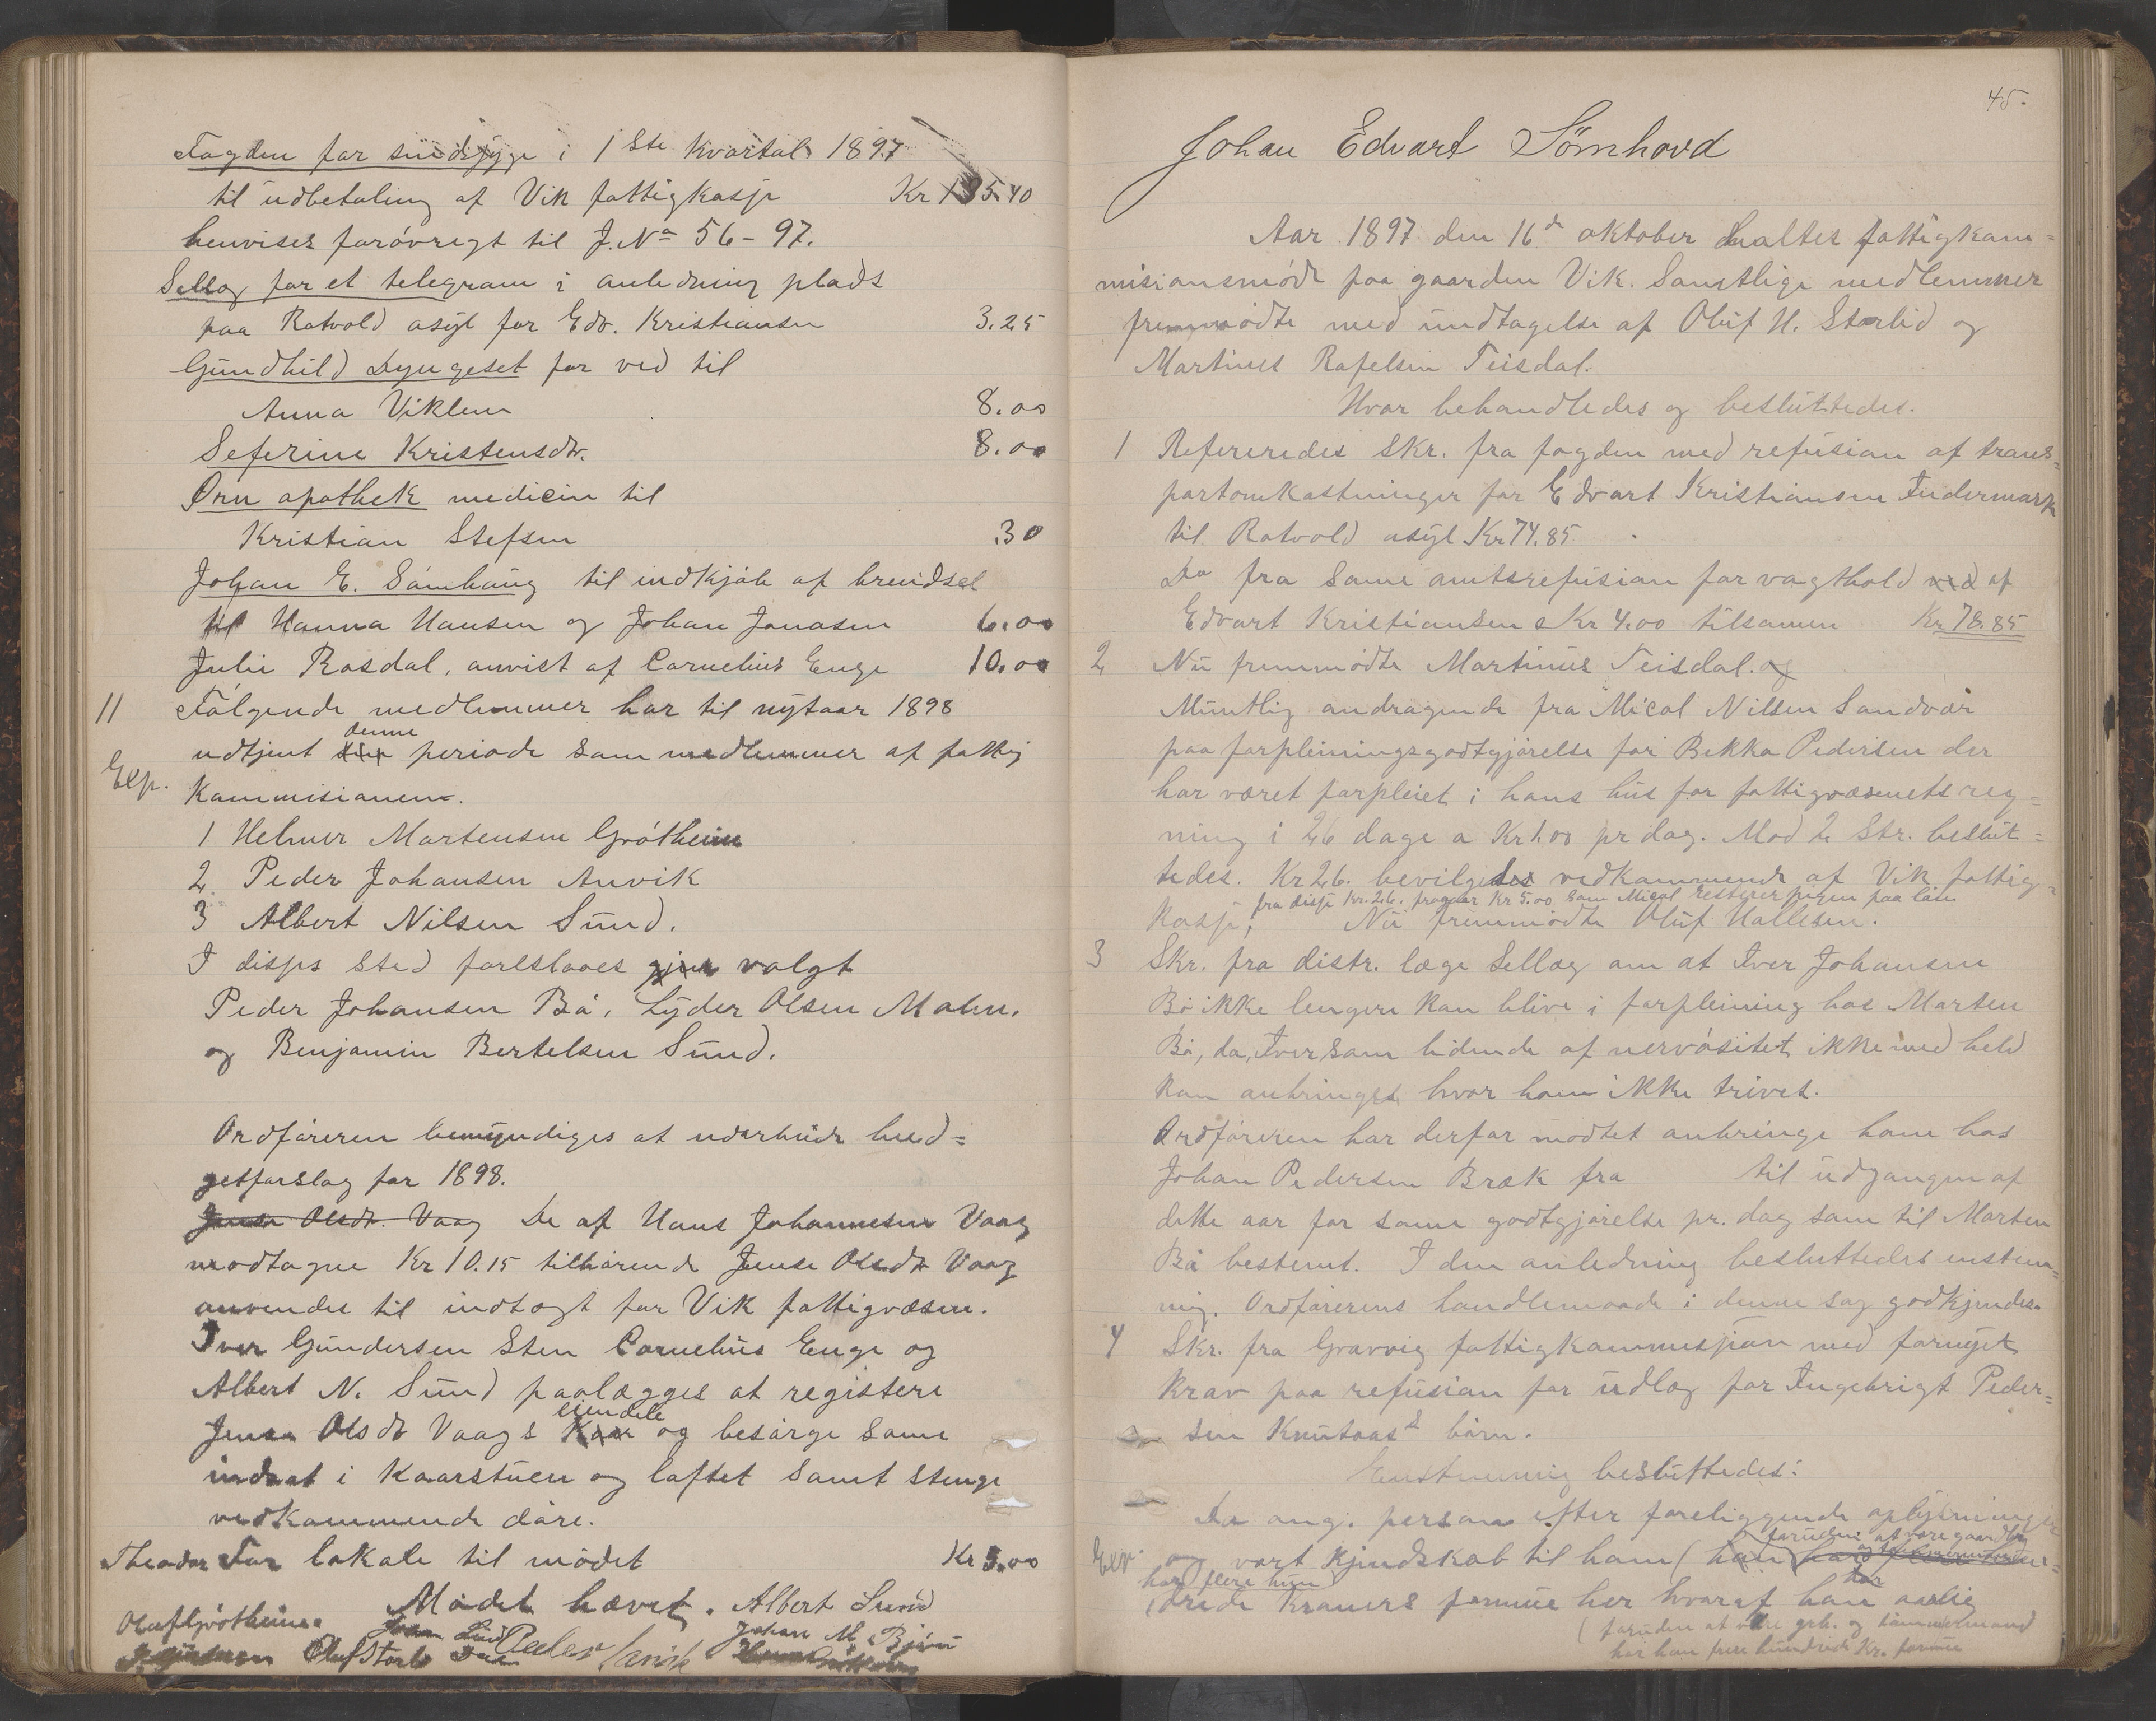 Fogden for sindsyge i 1ste kvartal 1897
til udbetaling af Vik fattigkasse Kr 135.40
henvises forøvrigt til J.No 56-97.
Sellæg for et telegram i anledning plads
paa Rotvold asyl for Edv. Kristiansen 3.25
Gundhild Dyngeset for ved til
Anna Viklem 8.00
Seferine Kristensdtr. 8.00
Ørn apothek medicin til
Kristian Stefsen .30
Johan E. Sømhaug til indkjøb af brendsel
til Hanna Hansen og Johan Jonasen 6.00
Julie Rosdal, anvist af Cornelius Enge 10.00
11 Følgende medlemmer har til nytaar 1898
denne
udtjent sin periode som medlemmer af fattig
Exp. kommisionen.
1 Helmer Martensen Grøtheim
2. Peder Johansen Anvik
3 Albert Nilsen Sund.
I disses sted foreslaaes valgt
Peder Johansen Bø, Lyder Olsen Malm.
og Benjamin Bertelsen Sund.
Ordføreren bemyndiges at udarbeide bud=
getforslag for 1898.
Jensa Olsdt. Vaag De af Hans Johannesen Vaag
modtagne Kr 10.15 tilhørende Jensa Olsdt Vaag
anvendes til indtægt for Vik fattigvæsen.
Iver Gundersen Sten Cornelius Enge og
Albert N. Sund paalægges at registere
eiendele
Jensa Olsdt Vaags og besørge same
indsat i Kaarstuen og loftet samt stenge
vedkommende døre.
Theodor For lokale til mødet Kr 5.00
Mødet hævet. Albert Sund
Olaf Grøtheim. Johan M. Bjørn
Oluf Storli Peder Anvik
45.
Johan Edvart Sømhovd
Aar 1897 den 16de oktober holdtes fattigkom=
misionsmøde paa gaarden Vik. Samtlige medlemmer
fremmødte med undtagelse af Oluf H. Storlid og
Martines Rafelsen Teisdal.
Hvor behandledes og besluttedes.
1 Refereredes skr. fra fogden med refusion af trans=
portomkostninger for Edvart Kristiansen Indermark
til Rotvold asyl Kr 74.85
Do fra same amtsrefusion for vagthold ved af
Edvart Kristiansen Kr 4.00 tilsamen Kr 78.85
2 Nu fremmødte Martinus Teisdal. og
Muntlig andragende fra Micol Nilsen Sandvær
paa forpleiningsgodtgjørelse for Bekka Pedersen der
har været forpleiet i hans hus for fattigvæsenets reg=
ning i 26 dage a Kr 1.00 pr dag. Mod 2 St. beslut=
tedes. Kr 26. bevilgedes vedkommende af Vik fattig=
fra disse Kr. 26. fragaar Kr 5.00 som Micol resterer pigen paa løn
kasse, Nu fremmødte Oluf Hallesen.
3 Skr. fra distr. læge Sellæg om at Iver Johansen
Bø ikke lengere kan blive i forpleining hos Morten
Bø, da, Iver som lidende af nervøsitet ikke med held
kan anbringes hvor ham ikke trives.
Ordføreren har derfor modtet anbringe ham hos
Johan Pedersen Bræk fra til udgangen af
dette aar for same godtgjørelse pr. dag som til Morten
Bø bestemt. I den anledning besluttedes enstem=
mig. Ordførerens handlemaade i denne sag godkjendes.
4 Skr. fra Gravvig fattigkommisjion med fornyet
krav paa refusion for udlæg for Ingebrigt Peder=
sen Knutaass børn.
Enstemmig besluttedes:
Da ang. person efter foreliggende oplysninger
Exp. og vort kjendskab til ham (
har flere hun
drede kroners formue her hvoraf han aarlig
(foruden at være grb. og tømmermand
har han flere hundrede Kr. formue